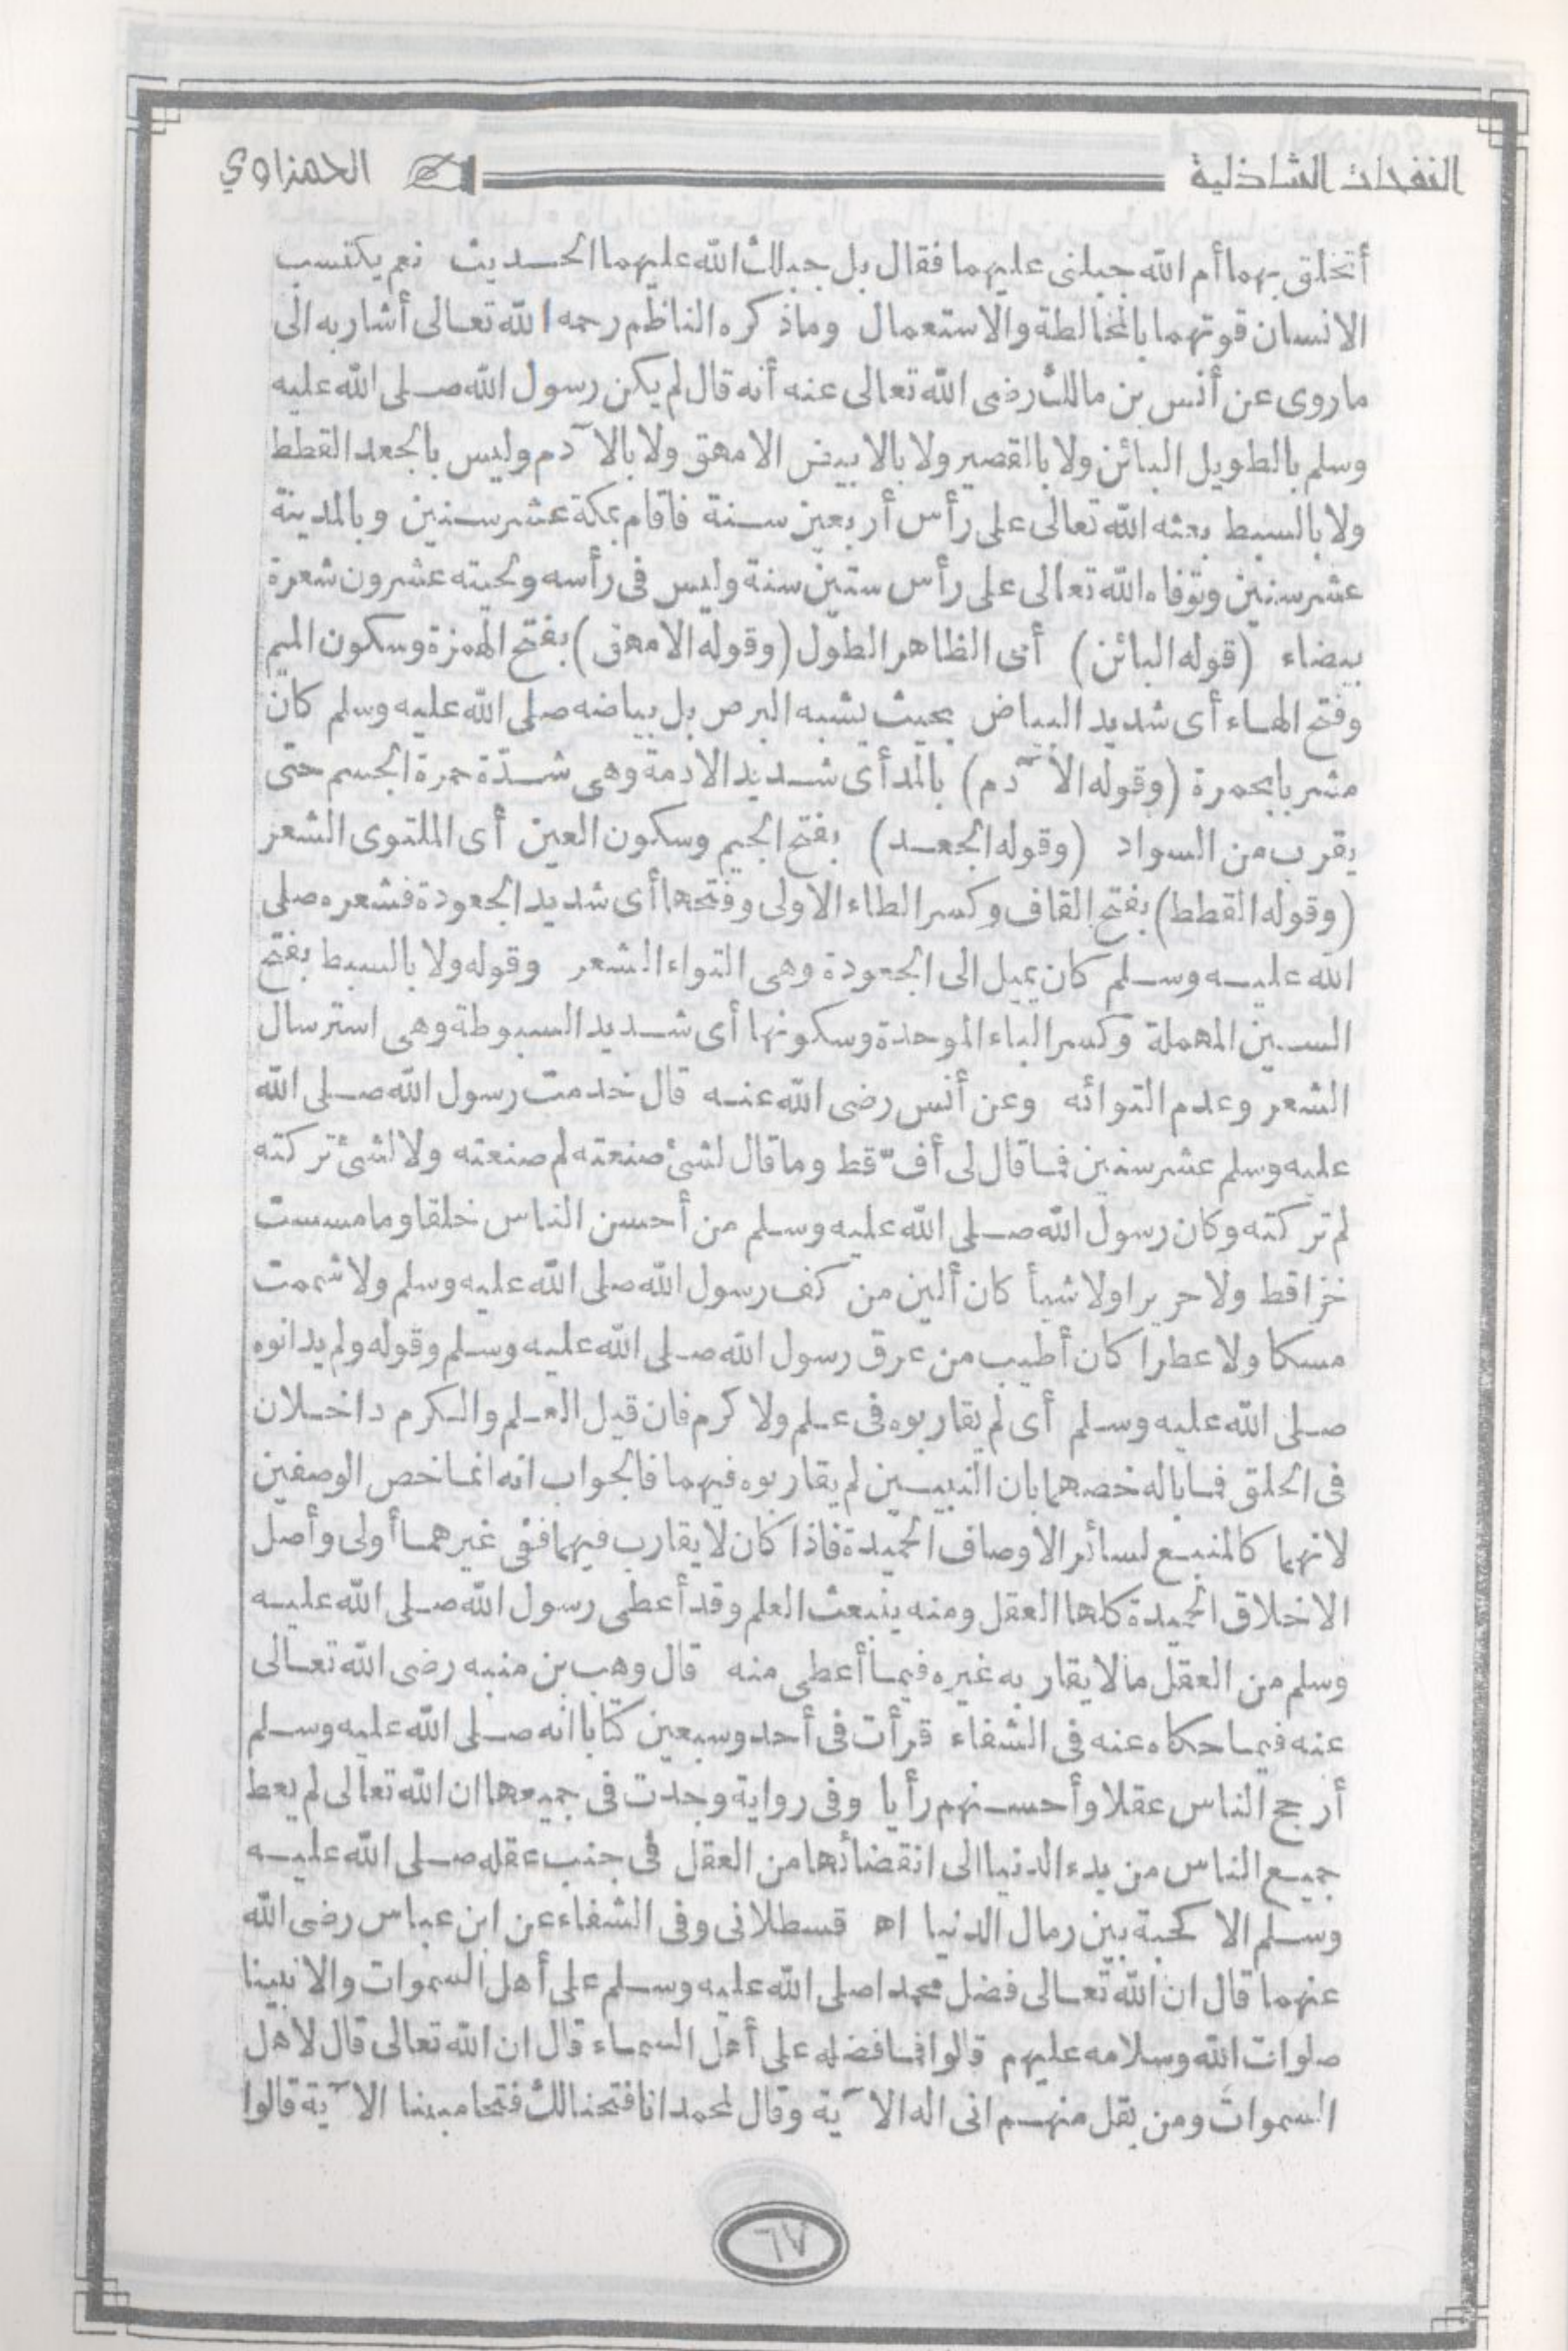 النفحات الشاذلية الحمزاوي
أتخلق بهما أم الله جبلنى عليهما فقال بل جبلك الله عليهما الحديث نعم يكتسب
الانسان قوتهما بالمخالطة والاستعمال وماذكره الناظم رحمه الله تعالى أشار به الى
ماروى عن أنس بن مالك رضى الله تعالى عنه أنه قال لم يكن رسول الله صلى الله عليه
وسلم بالطويل البائن ولا بالقصير ولا بالابيض الامهق ولا بالآدم وليس بالجعد القطط
ولا بالسبط بعثه الله تعالى على رأس أربعين سنة فاقام بمكة عشر سنين وبالمدينة
عشر سنين وتوفاه الله تعالى على رأس ستين سنة وليس فى رأسه ولحيته عشرون شعرة
بيضاء (قوله البائن) أى الظاهر الطول (وقوله الامهق) بفتح الهمزة وسكون الميم
وفتح الهاء أى شديد البياض بحيث يشبه البرص بل بياضه صلى الله عليه وسلم كان
مشربا بحمرة (وقوله الآدم) بالمد أى شديد الادمة وهى شدة حمرة الجسم حتى
يقرب من السواد (وقوله الجعد) بفتح الجيم وسكون العين أى الملتوى الشعر
(وقوله القطط) بفتح القاف وكسر الطاء الاولى وفتحها أى شديد الجعودة فشعره صلى
الله عليه وسلم كان يميل الى الجعودة وهى التواء الشعر وقوله ولا بالسبط بفتح
السين المهملة وكسر الباء الموحدة وسكونها أى شديد السبوطة وهى استرسال
الشعر وعدم التوائه وعن أنس رضى الله عنه قال خدمت رسول الله صلى الله
عليه وسلم عشر سنين فما قال لى أفّ قط وما قال لشئ صنعته لم صنعته ولا لشئ تركته
لم تركته وكان رسول الله صلى الله عليه وسلم من أحسن الناس خلقا وما مسست
خزا قط ولا حريرا ولا شيأ كان ألين من كف رسول الله صلى الله عليه وسلم ولا شممت
مسكا ولا عطرا كان أطيب من عرق رسول الله صلى الله عليه وسلم وقوله ولم يدانوه
صلى الله عليه وسلم أى لم يقاربوه فى علم ولا كرم فان قيل العلم والكرم داخلان
فى الخلق فما باله خصهما بان النبيين لم يقاربوه فيهما فالجواب انه انما خص الوصفين
لانهما كالمنبع لسائر الاوصاف الحميدة فاذا كان لا يقارب فيهما ففى غيرهما أولى وأصل
الاخلاق الحميدة كلها العقل ومنه ينبعث العلم وقد أعطى رسول الله صلى الله عليه
وسلم من العقل مالا يقاربه غيره فيما أعطى منه قال وهب بن منبه رضى الله تعالى
عنه فيما حكاه عنه فى الشفاء قرأت فى أحد وسبعين كتابا انه صلى الله عليه وسلم
أرجح الناس عقلا وأحسنهم رأيا وفى رواية وجدت فى جميعها ان الله تعالى لم يعط
جميع الناس من بدء الدنيا الى انقضائها من العقل فى جنب عقله صلى الله عليه
وسلم الا كحبة بين رمال الدنيا اه قسطلانى وفى الشفاء عن ابن عباس رضى الله
عنهما قال ان الله تعالى فضل محمدا صلى الله عليه وسلم على أهل السموات والانبيا
صلوات الله وسلامه عليهم قالوا فما فضله على أهل السماء قال ان الله تعالى قال لاهل
السموات ومن يقل منهم انى اله الآية وقال لمحمد انا فتحنا لك فتحا مبينا الآية قالوا
٦٧